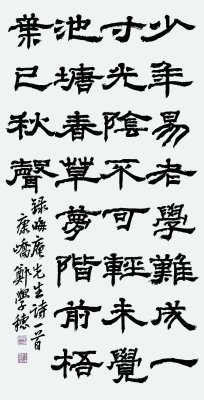 少年易老學難成一
寸光陰不可輕未覺
池塘春草夢階前梧
葉已秋聲
録晦庵先生诗一首
康嶠鄭學